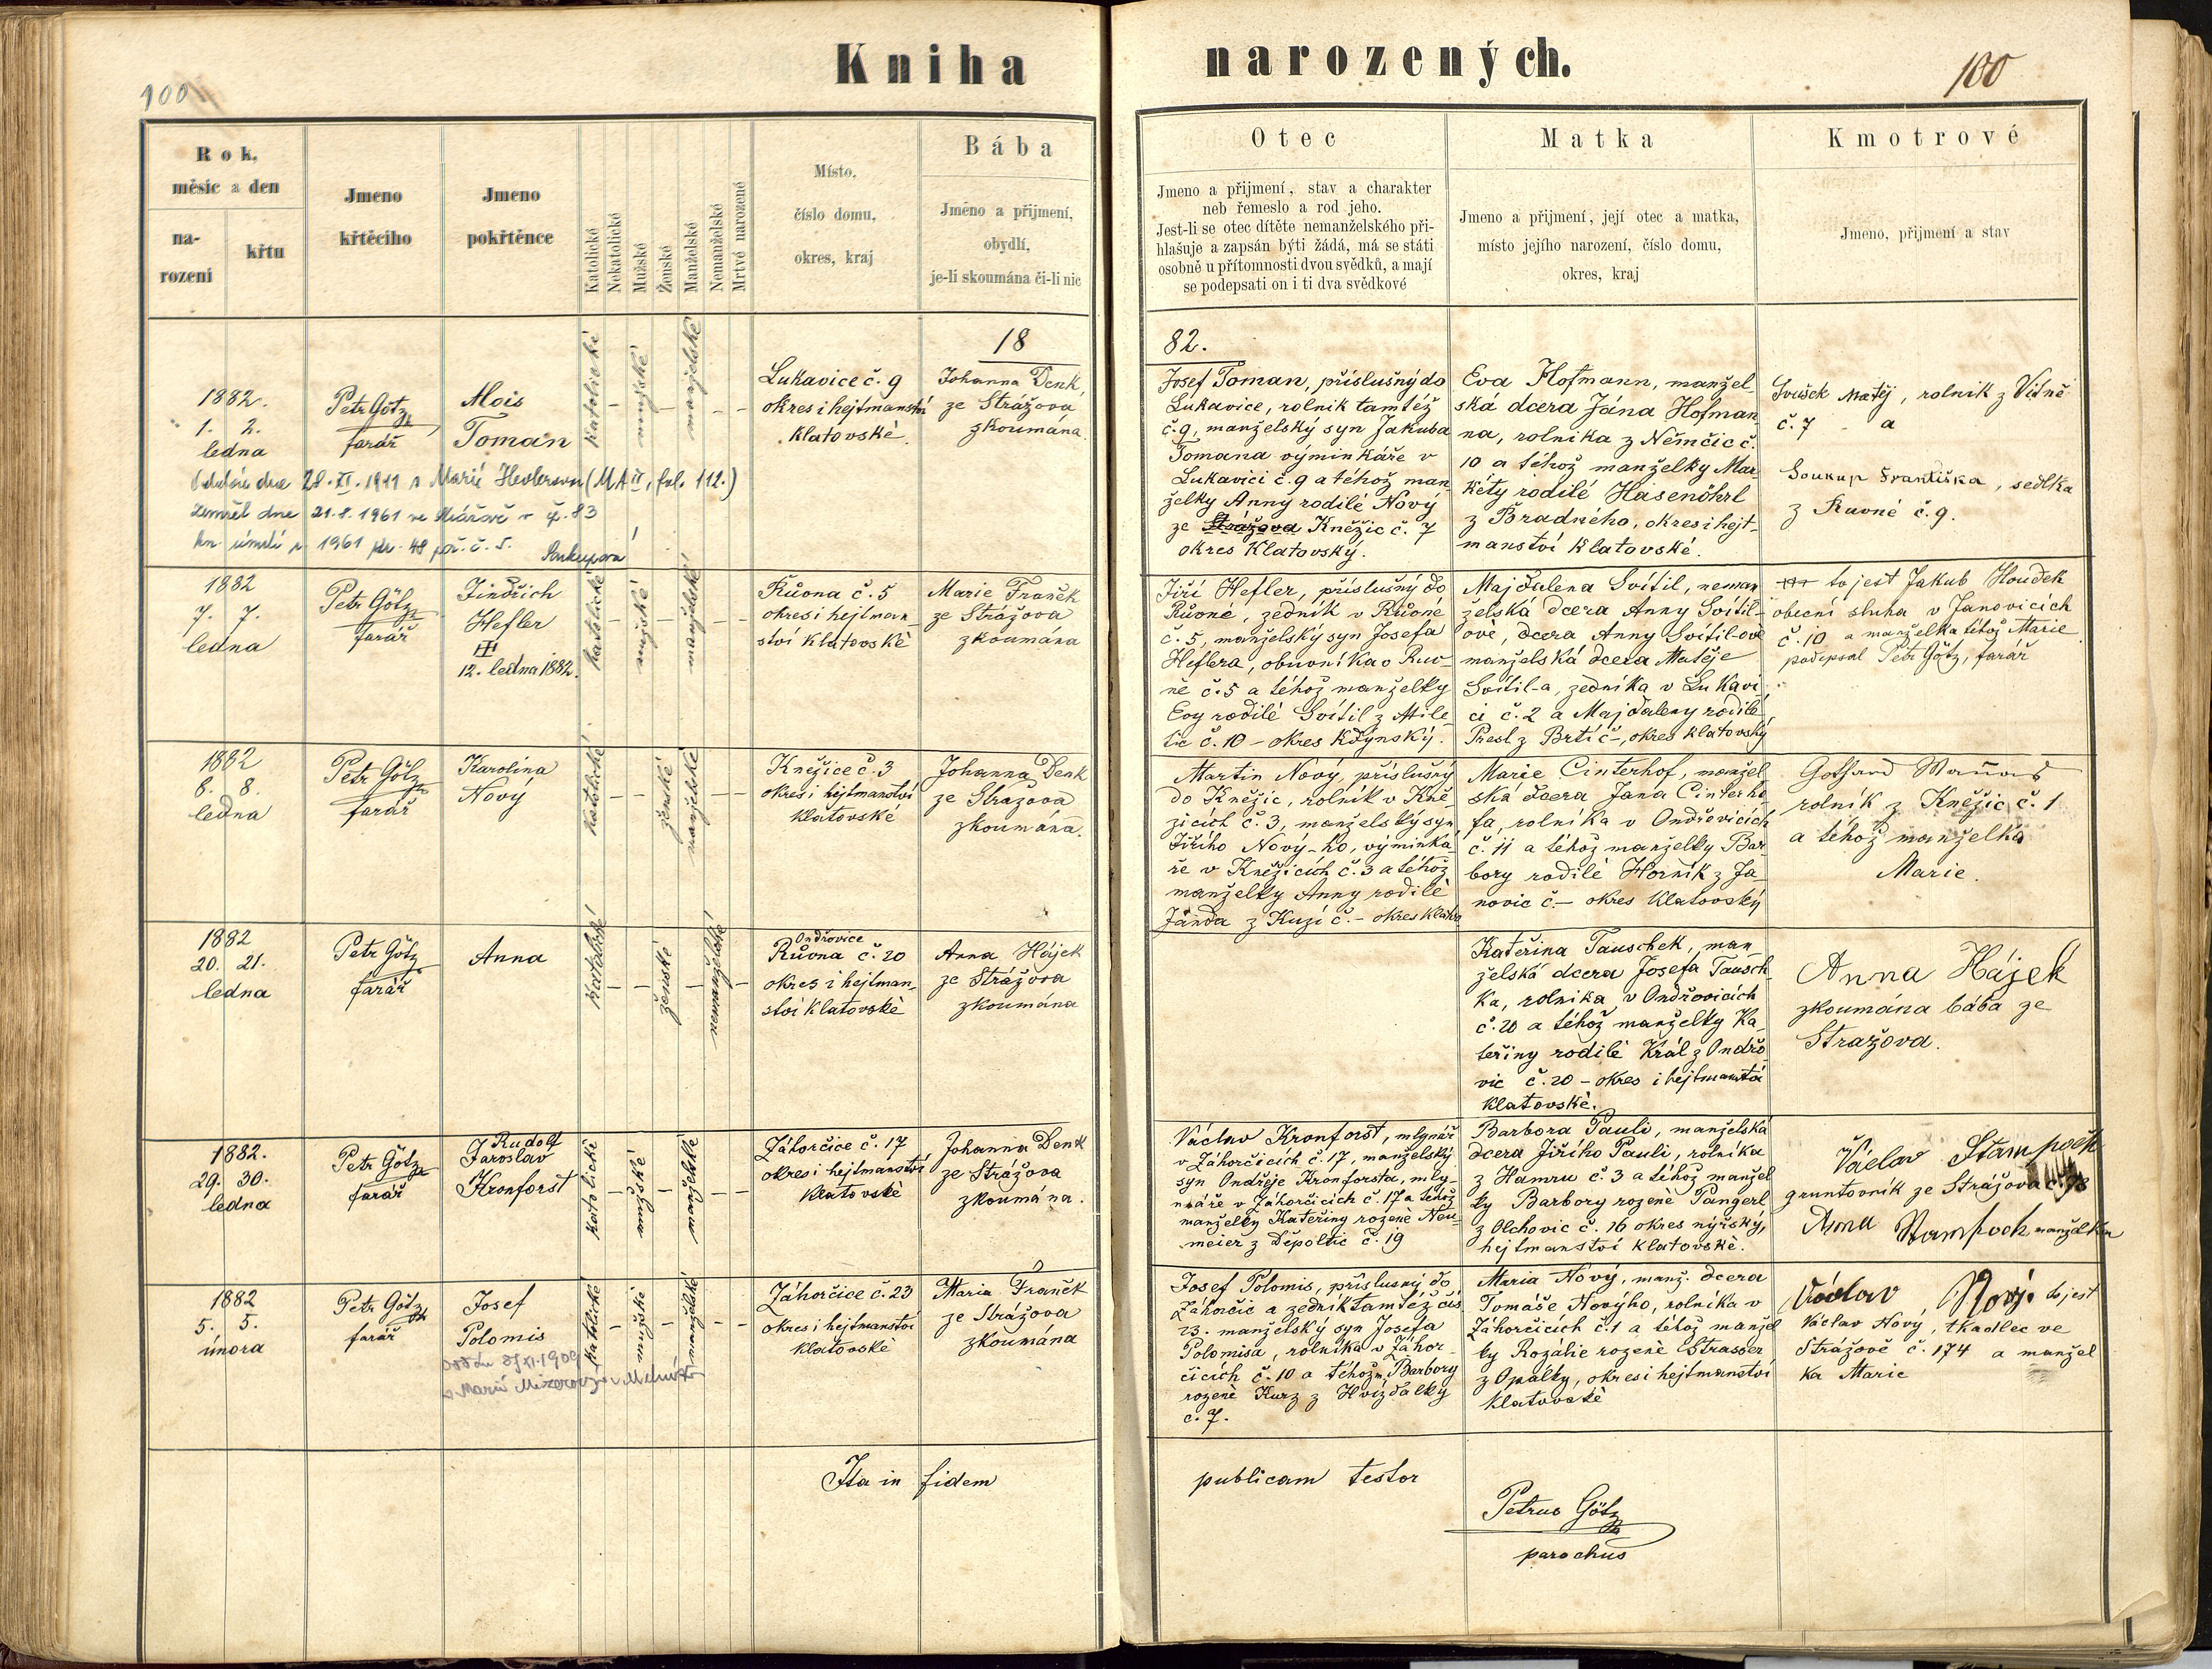 Kniha
narozených.
100
100
Rok,
měsíc a den
na-
rození
křtu
Jmeno
křtěcího
Jmeno
pokřtěnce
Katolické
Nekatolické
Mužské
Ženské
Manželské
Nemanželské
Mrtvé narozené
Místo,
číslo domu,
okres, kraj
Bába
Jméno a přijmení,
obydlí,
je-li skoumána či-li nic
Otec
Jmeno a přijmení, stav a charakter
neb řemeslo a rod jeho.
Jest-li se otec dítěte nemanželského při-
hlašuje a zapsán býti žádá, má se státi
osobně u přítomnosti dvou svědků, a mají
se podepsati on i ti dva svědkové
Matka
Jmeno a přijmení, její otec a matka,
místo jejího narození, číslo domu,
okres, kraj
Kmotrové
Jmeno, přijmení a stav
18
82.
1882.
1. 2.
ledna
Petr Götz
farář
Alois
Toman
katolické
mužské
manželské
Lukavice č. 9
okres i hejtmanství
Klatovské.
Johanna Denk
ze Strážova
zkoumána.
dne 28. XI. 1911 s Marií (MA II, fol. 112.)
zemřel dne 21.8.1961 ve Strážově č. 83
kn. úmrtí 1961 str. 48 poř. č. 5. Soukupová
Josef Toman, příslušný do
Lukavice, rolník tamtéž
č. 9, manželský syn Jakuba
Tomana výminkáře v
Lukavici č. 9 a téhož man-
želky Anny rodilé Nový
ze Strážova Kněžic č. 7
okres Klatovský.
Eva Hofmann, manžel-
ská dcera Jána Hofman-
na, rolníka z Němčic č.
10 a téhož manželky Mar-
kéty rodilé Hasenöhrl
z Bradného, okres i hejt-
manství Klatovské.
Svušek Matěj, rolník z Vítně
č. 7 a
Soukup Františka, sedlka
z Ruvné č. 9.
1882
7. 7.
ledna
Petr Götz
farář
Jindřich
Hefler
12. ledna 1882.
katolické
mužské
manželské
Růvna č. 5
okres i hejtman-
ství Klatovské
Marie Franěk
ze Strážova
zkoumána
Jiří Hefler, příslušný do
Růvné, zedník v Růvné
č. 5, manželský syn Josefa
Heflera, obuvníka v Ruv-
ně č. 5 a téhož manželky
Evy rodilé Svítil z Mile-
tic č. 10 - okres Kdýnský.
Majdalena Svítil, neman-
želská dcera Anny Svítil-
ové, dcera Anny Svítil-ové
manželská dcera Matěje
Svítil-a, zedníka v Lukavi-
ci č. 2 a Majdaleny rodilé
Presl z Brtí č -, okres Klatovský
+++ to jest Jakub Houdek
obecní sluha v Janovicích
č. 10 a manželka téhož Marie
podepsal Petr Götz, farář
1882
8. 8.
ledna
Petr Götz
farář
Karolina
Nový
katolické
ženské
manželské
Kněžice č. 3
okres i hejtmanství
Klatovské
Johanna Denk
ze Strážova
zkoumána.
Martin Nový, příslušný
do Kněžic, rolník v Kně-
žicích č. 3, manželský syn
Jiřího Nový-ho, výminká-
ře v Kněžicích č. 3 a téhož
manželky Anny rodilé
Janda z Kuzí č. - okres Klatov
Marie Cinterhof, manžel-
ská dcera Jana Cinterho-
fa, rolníka v Ondřovicích
č. 11 a téhož manželky Bar-
bory rodilé Horník z Ja-
novic č - okres Klatovský
Gothard
rolník z Kněžic č. 1
a téhož manželka
Marie.
1882
20. 21.
ledna
Petr Götz
farář
Anna
katolické
ženské
nemanželské
Ondřovice
Růvna č. 20
okres i hejtman-
ství Klatovské
Anna Hájek
ze Strážova
zkoumána
Kateřina Tauschek, man-
želská dcera Josefa Tausch-
ka, rolníka v Ondřovicích
č. 20 a téhož manželky Ka-
teřiny rodilé Král z Ondřo-
vic č. 20 - okres i hejtmanství
Klatovské.
Anna Hájek
zkoumána bába ze
Stražova.
1882.
29. 30.
ledna
Petr Götz
farář
Rudolf
Jaroslav
Kronforst
katolické
mužské
manželské
Záhorčice č. 17
okres i hejtmanství
Klatovské
Johanna Denk
ze Strážova
zkoumána.
Václav Kronforst, mlynář
v Záhorčicích č. 17, manželský
syn Ondřeje Kronforsta, mly-
náře v Záhorčicích č. 17 a téhož
manželky Kateřiny rozené Neu-
meier z Děpoltic č. 19
Barbora Pauli, manželská
dcera Jiřího Pauli, rolníka
z Hamru č. 3 a téhož manžel-
ky Barbory rozené Pangerl
z Olchovic č. 16 okres nýrský,
hejtmanství Klatovské.
Václav Stampach
gruntovník ze Strážova
Anna Stampach manželka
1882
5. 5.
února
Petr Götz
farář
Josef
Polomis
katolické
mužské
manželské
Záhorčice č. 23
okres i hejtmanství
Klatovské
Maria Franěk
ze Strážova
zkoumána
Josef Polomis, příslušný do
Záhorčic a zedník tamtéž čís
23. manželský syn Josefa
Polomisa, rolníka v Záhor-
čicích č. 10 a téhož m. Barbory
rozené Kurz z Hvízdalky
č. 7.
Maria Nový, manž. dcera
Tomáše Novýho, rolníka v
Záhorčicích č. 1 a téhož manžel-
ky Rozálie rozené Strasser
z Opálky, okres i hejtmanství
Klatovské
Václav Nový to jest
Václav Nový, tkadlec ve
Strážově č. 174 a manžel
ka Marie
Ita in fidem
publicam testor
Petrus Götz
parochus